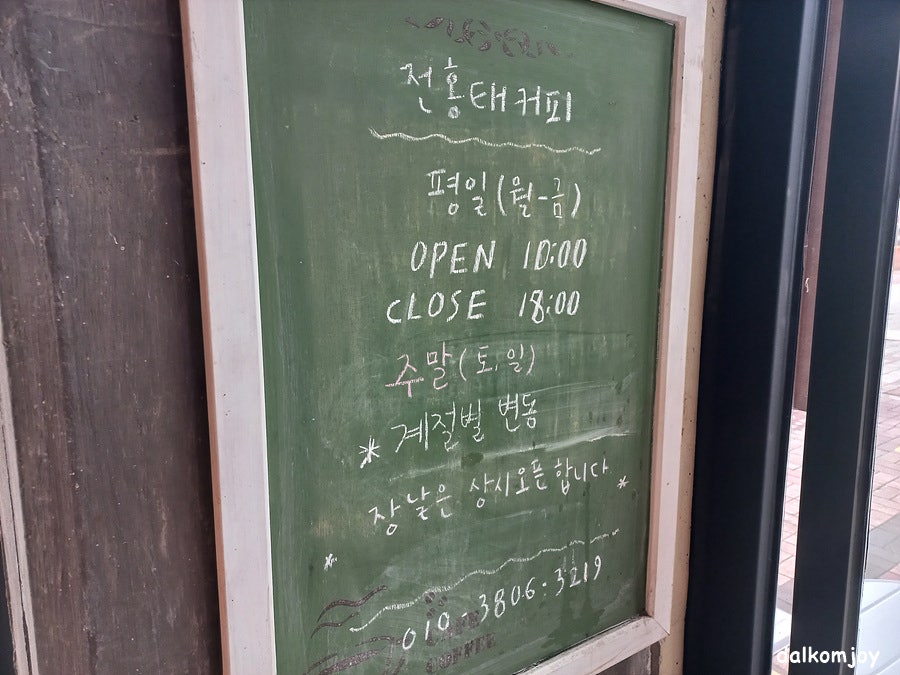 전홍태커피
평일(월-금)
OPEN 10:00
CLOSE 18:00
주말(토,일)
* 계절별 변동
장날은 상시오픈합니다 *
*
010 3806 · 3219
COFFEE
dalkomjoy